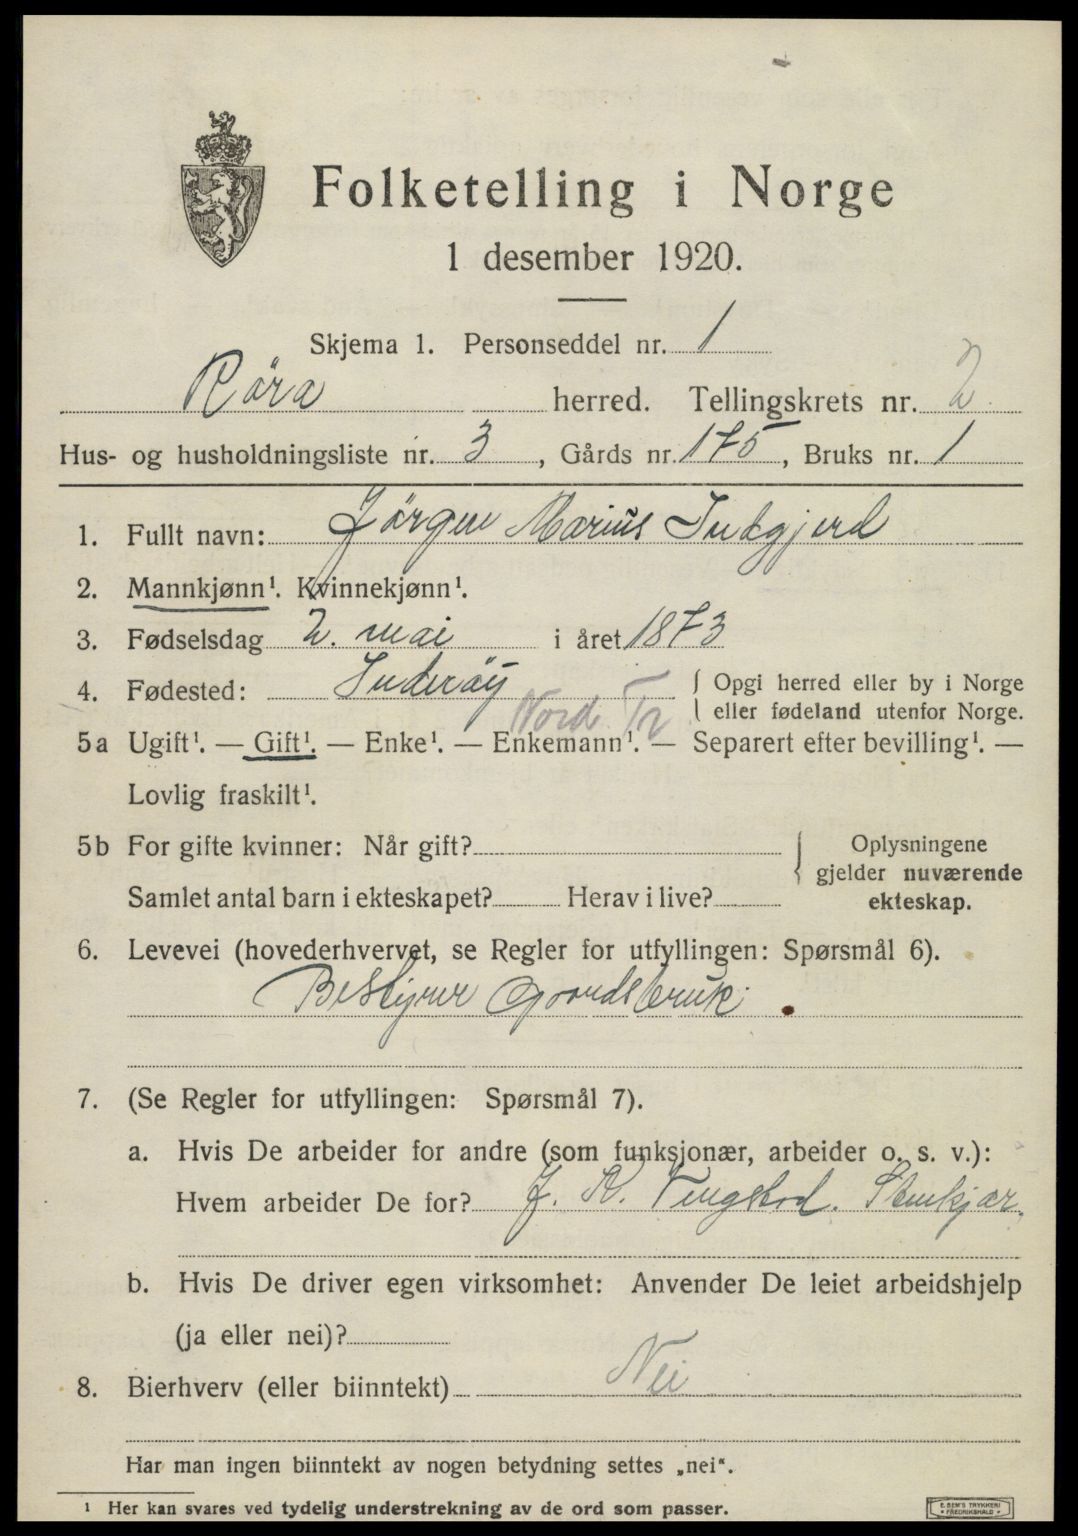 Folketelling i Norge
1 desember 1920.
Skjema 1. Personseddel nr. 1
Röra herred. Tellingskrets nr. 2
Hus- og husholdningsliste nr. 3, Gårds nr. 175, Bruks nr. 1
1. Fullt navn: Jörgen Marius
2. Mannkjønn¹. Kvinnekjønn¹.
3. Fødselsdag 2. mai i året 1873
4. Fødested: Inderöy Nord Tr { Opgi herred eller by i Norge
eller fødeland utenfor Norge.
5a Ugift¹. — Gift¹. — Enke¹. — Enkemann¹. — Separert efter bevilling¹. —
Lovlig fraskilt¹.
5b For gifte kvinner: Når gift? { Oplysningene
gjelder nuværende
Samlet antal barn i ekteskapet? Herav i live? ekteskap.
6. Levevei (hovederhvervet, se Regler for utfyllingen: Spørsmål 6).
Bestyrer Gaardsbruk
7. (Se Regler for utfyllingen: Spørsmål 7).
a. Hvis De arbeider for andre (som funksjonær, arbeider o. s. v.):
Hvem arbeider De for? J. K. Tingstad. Stenkjær.
b. Hvis De driver egen virksomhet: Anvender De leiet arbeidshjelp
(ja eller nei)?
8. Bierhverv (eller biinntekt) Nei
Har man ingen biinntekt av nogen betydning settes „nei“.
¹ Her kan svares ved tydelig understrekning av de ord som passer.
E. SEM'S TRYKKERI
FREDRIKSHALD